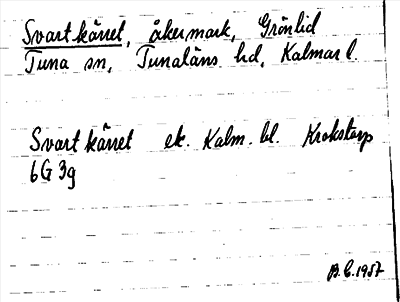 Svartkärret, åkermark, Grönlid
Tuna sn, Tunaläns hd, Kalmar l.
Svartkärret ek. Kalm. bl. Krokstorp
6G 3g
B.E. 1957